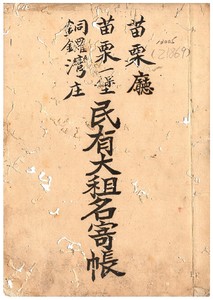 苗栗廳
苗栗一堡
銅鑼灣庄
民有大租名寄帳